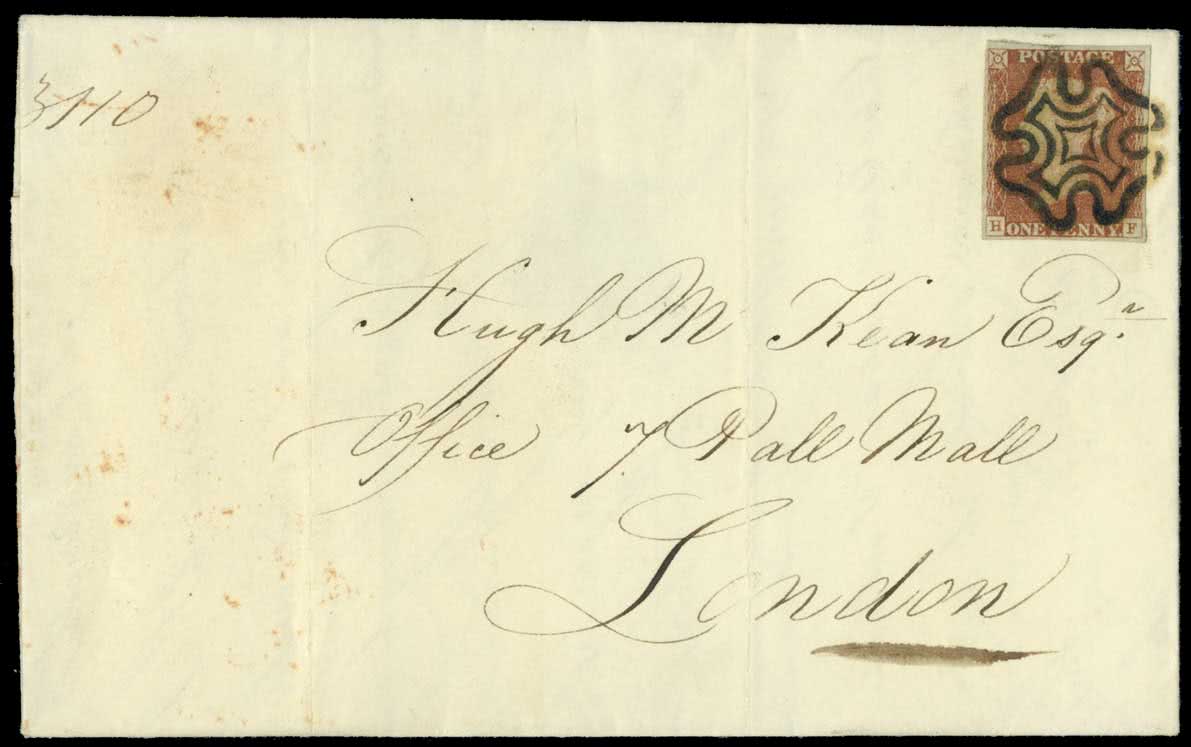 POSTAGE
H ONE PENNY. F
3110
Hugh M Kean Esqr.
Office 7 Pall Mall
London